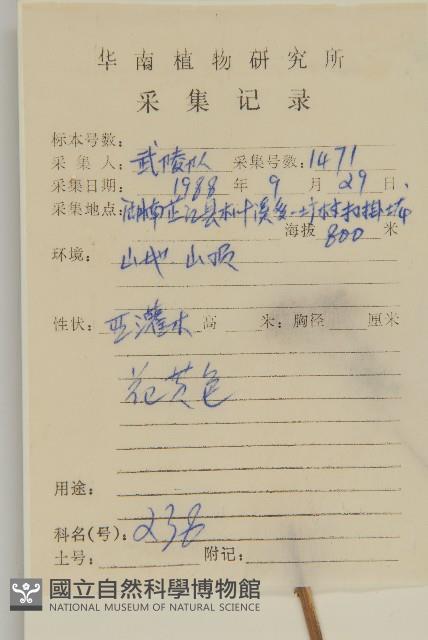 华南植物研究所
采集记录
标本号数:
采集人: 武陵队 采集号数: 1471
采集日期: 1988 年 9 月 29 日
采集地点: 湖南芷江县木叶溪乡
海拔 800 米
环境: 山地 山顶
性状: 亚灌木 高 米: 胸径 厘米
花黄色
用途:
科名(号): 238
土号: 附记:
國立自然科學博物館
NATIONAL MUSEUM OF NATURAL SCIENCE